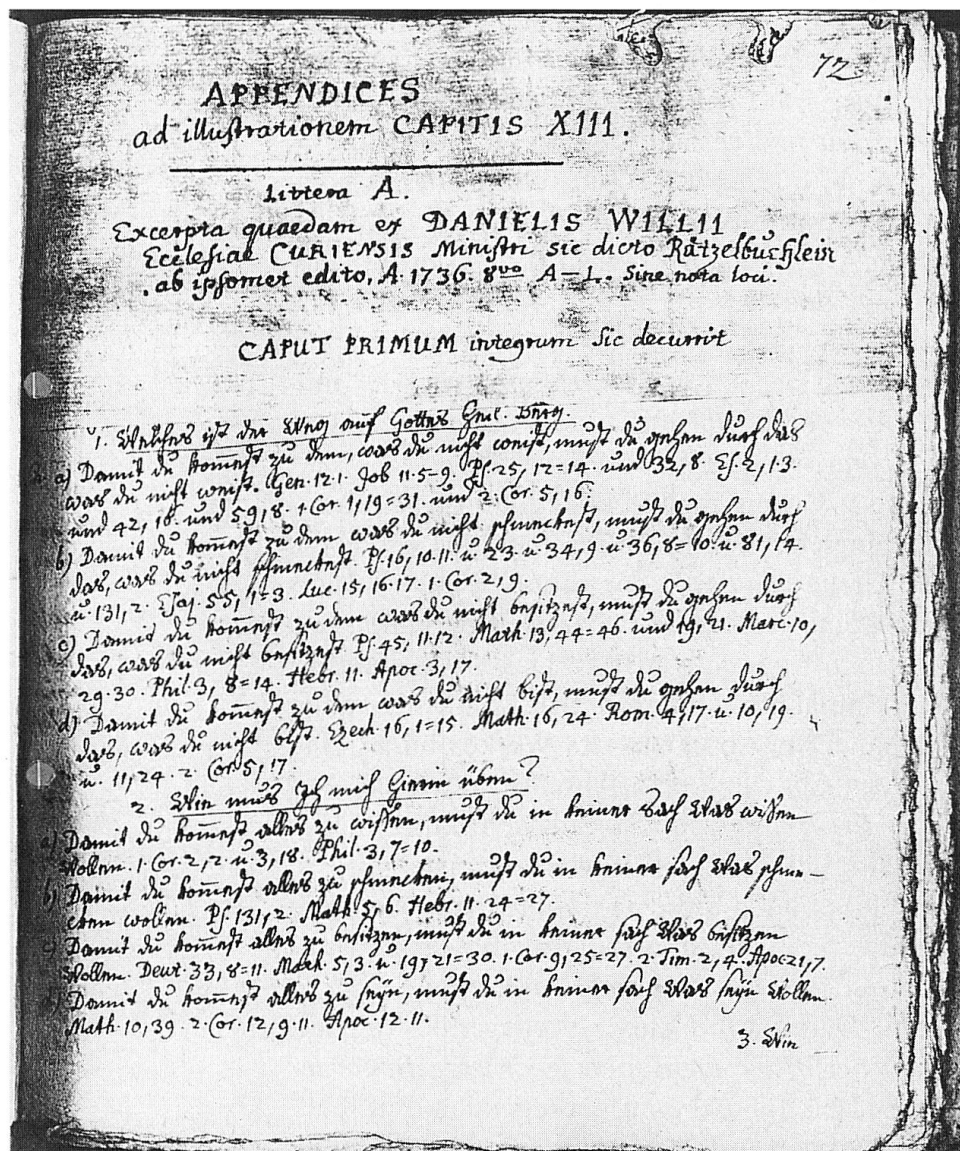 72
APPENDICES
ad illustrationem CAPITIS XIII.
Littera A.
Excerpta quaedam ex DANIELIS WILLII
Ecclesiae CURIENSIS Ministri sic dicto Rätzelbüchlein
ab ipsomet edito, A. 1736. 8vo A–L. Sine nota loci.
CAPUT PRIMUM integrum sic decurrit
1. Welches ist der Weg auf Gottes Heil. Berg.
a) Damit du kom̄est zu dem, was du nicht weist, must du gehen durch das
was du nicht weist. Gen. 12.1. Job 11.5-9. Ps. 25, 12=14. und 32, 8. Es. 2, 1.3.
und 42, 16. und 59, 8. 1. Cor. 1, 19=31. und 2. Cor. 5, 16.
b) Damit du kom̄est zu dem was du nicht schmeckest, must du gehen durch
das, was du nicht schmeckest. Ps. 16, 10.11. u. 23. u. 34, 9. u. 36, 8=10. u. 81, 14.
u. 131, 2. Esaj. 55, 1=3. Luc. 15, 16.17. 1. Cor. 2, 9.
c) Damit du kom̄est zu dem was du nicht besitzest, must du gehen durch
das, was du nicht besitzest. Ps. 45, 11.12. Math. 13, 44=46. und 19, 21. Marc. 10,
29.30. Phil. 3, 8=14. Hebr. 11. Apoc. 3, 17.
d) Damit du kom̄est zu dem was du nicht bist, must du gehen durch
das, was du nicht bist. Ezech. 16, 1=15. Math. 16, 24. Rom. 4, 17. u. 10, 19.
u. 11, 24. 2. Cor. 5, 17.
2. Wie mus Ich mich hierin üben?
a) Damit du kom̄est alles zu wissen, must du in keiner Sach Was wissen
Wollen. 1. Cor. 2, 2. u. 3, 18. Phil. 3, 7=10.
b) Damit du kom̄est alles zu schmecken, must du in keiner sach Was schme-
cken wollen. Ps. 131, 2. Math. 5, 6. Hebr. 11. 24=27.
c) Damit du kom̄est alles zu besitzen, must du in keiner sach Was besitzen
Wollen. Deut. 33, 8=11. Math. 5, 3. u. 19, 21=30. 1. Cor. 9, 25=27. 2. Tim. 2, 4. Apoc. 21, 7.
d) Damit du kom̄est alles zu seyn, must du in keiner sach Was seyn Wollen.
Math. 10, 39. 2. Cor. 12, 9.11. Apoc. 12. 11.
3. Wie